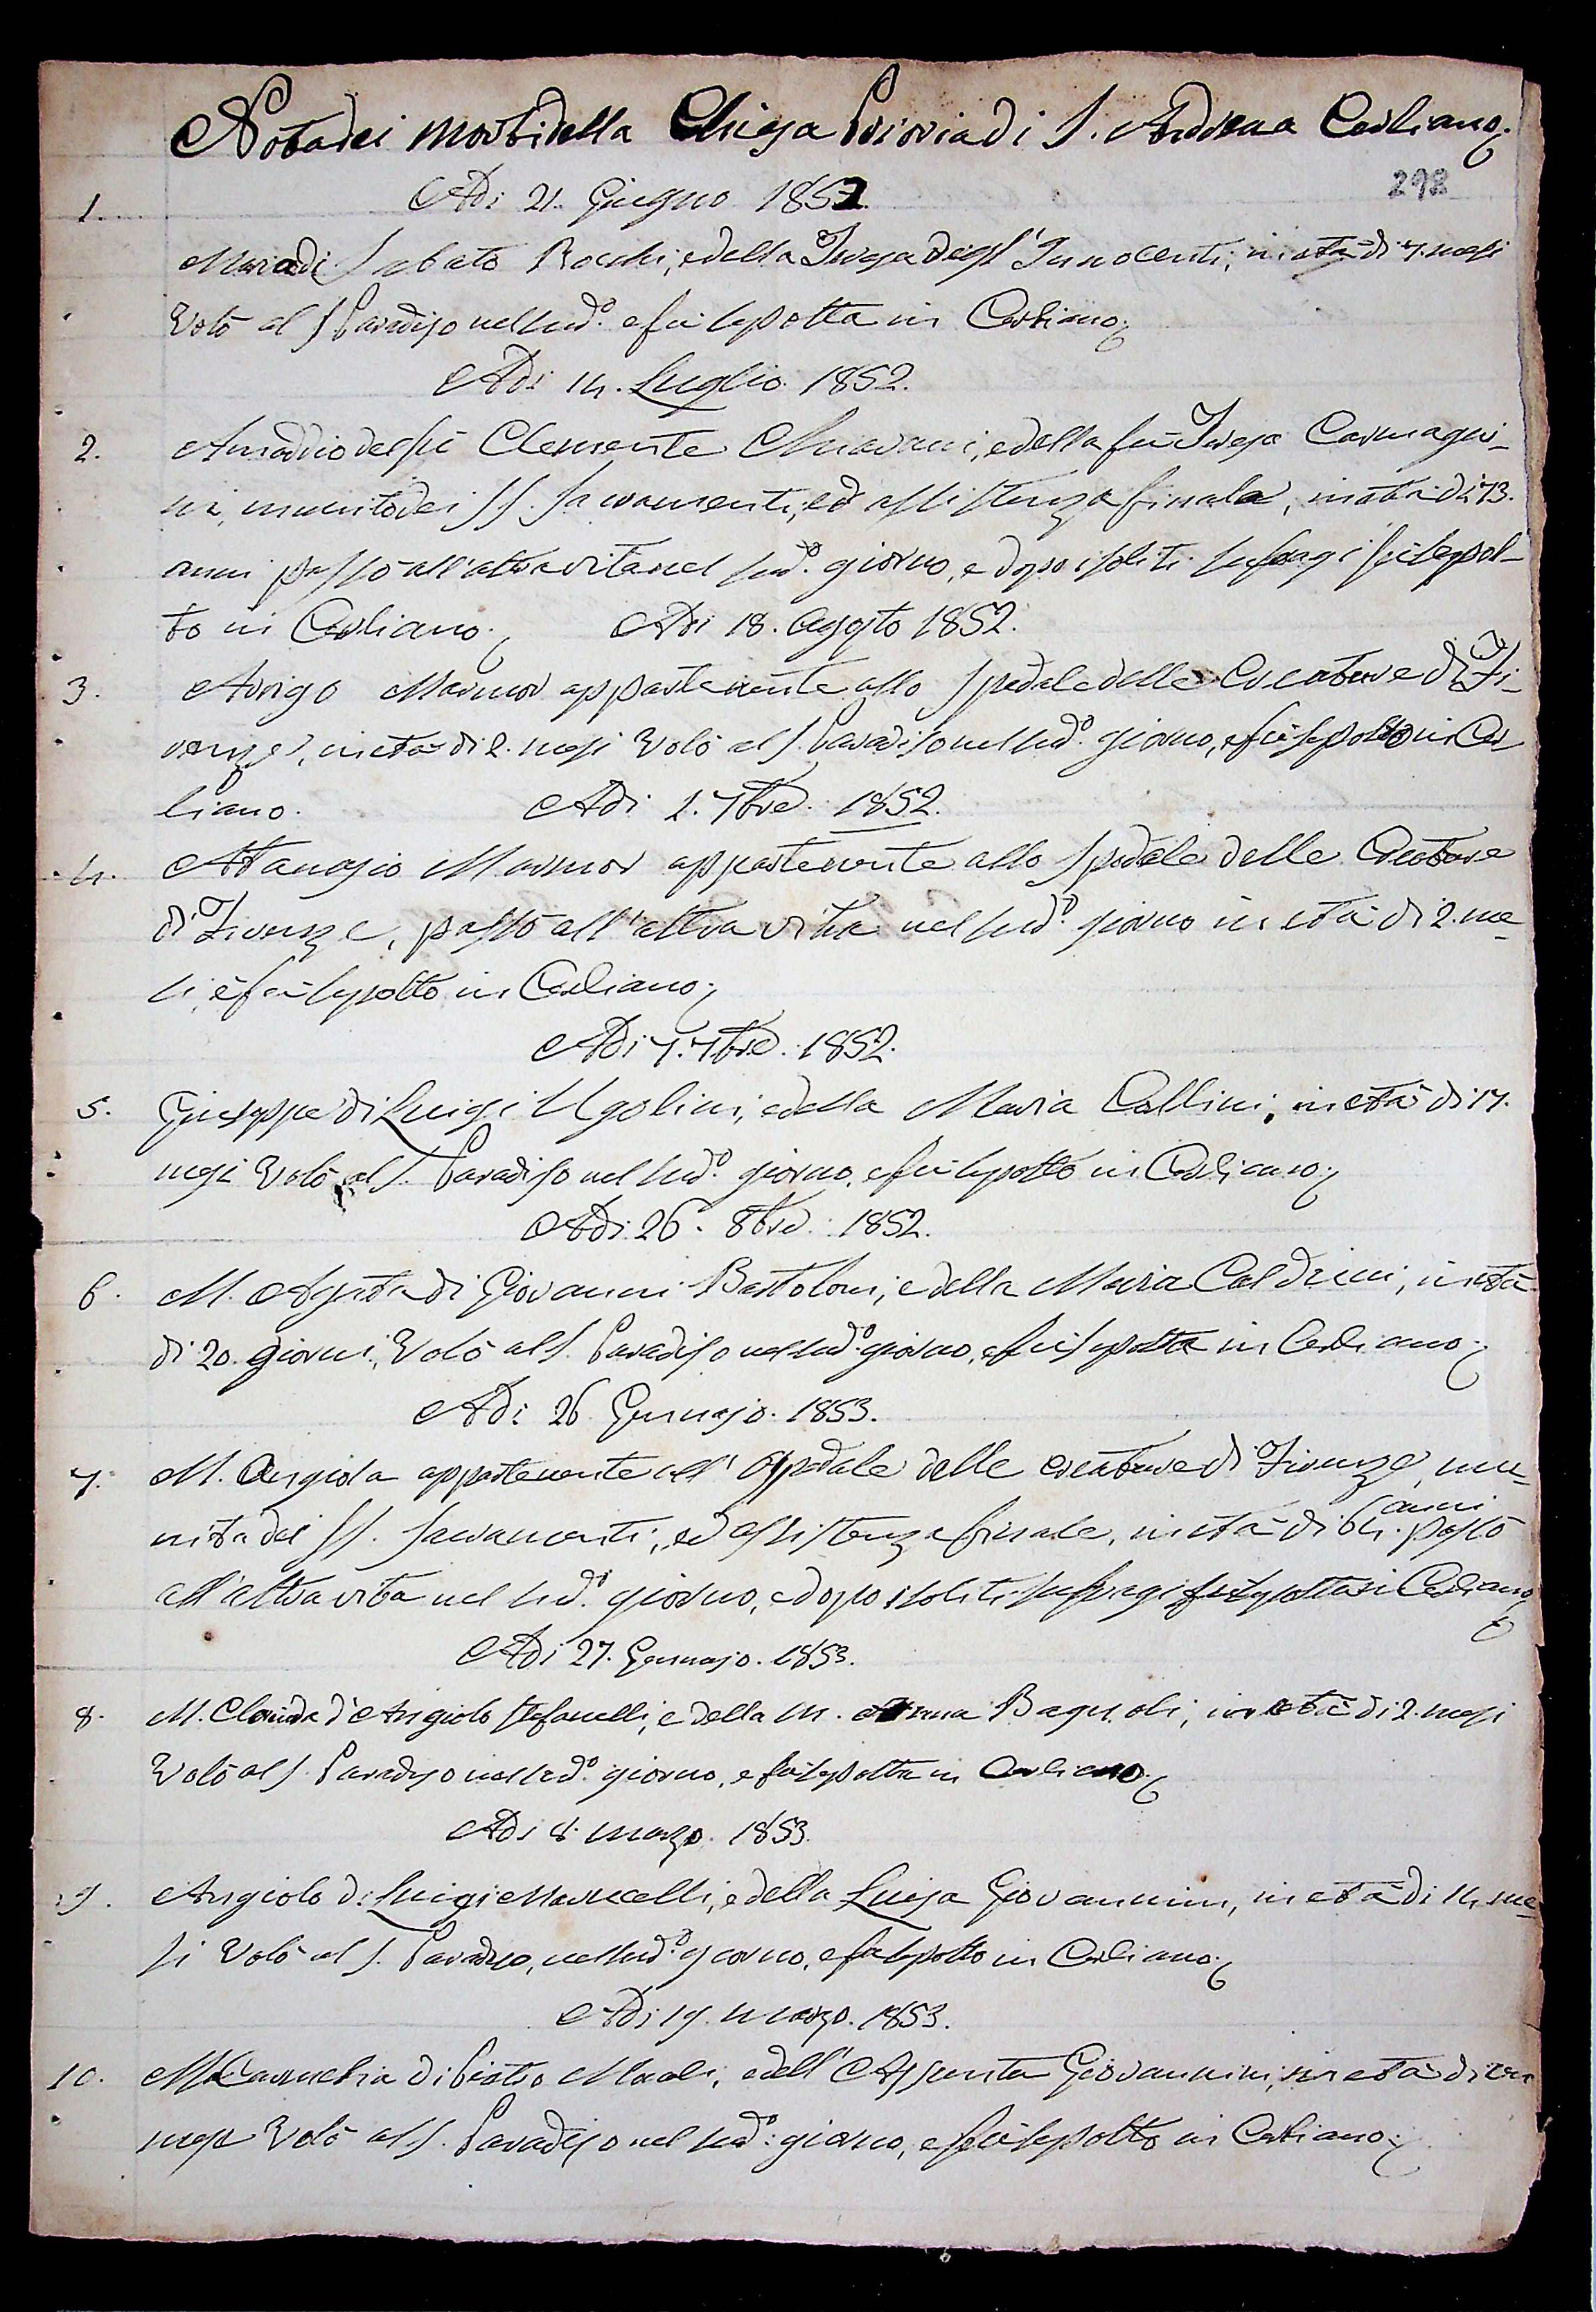 Nota dei Morti della Chiesa Prioria di S. Andrea Cerliano.
292
Adi 21. Giugno 1852.
1. Maria di Sabato Rocchi, e della Teresa degl' Innocenti, in età di 7. mesi
Volò al S. Paradiso nel sud.º e fù sepolta in Cerliano.
Adi 14. Luglio. 1852.
2. Amaddio del fù Clemente Chiavani, e della fù Teresa Carmagni-
ni, munito dei SS. Sacramenti, ed assistenza finale, in età di 73.
anni passò all'altra vita nel sud.º giorno, e dopo i soliti suffragi fù sepol-
to in Cerliano. Adi 18. Agosto 1852.
3. Arrigo Marmor appartenente allo Spedale delle Creature di Fi-
renze, in età di 2. mesi Volò al S. Paradiso nel sud.º giorno, e fù sepolto in Cer
liano. Adi 2. 7bre. 1852.
4. Atanasio Marmor appartenente allo Spedale delle Creature
di Firenze, passò all'altra vita nel sud.º giorno in età di 2. me-
si, e fù sepolto in Cerliano.
Adi 7. 7bre. 1852.
5. Giuseppe di Luigi Ugolini, e della Maria Collini, in età di 17.
mesi Volò al S. Paradiso nel sud.º giorno, e fù sepolto in Cerliano.
Adi 26. 8bre. 1852.
6. M. Agata di Giovanni Bartoloni, e della Maria Calderini, in età
di 20. giorni, Volò al S. Paradiso nel sud.º giorno, e fù sepolta in Cerliano.
Adi 26 Gennajo. 1853.
7. M. Angiola appartenente all' Ospedale delle creature di Firenze, mu-
nita dei SS. Sacramenti, ed assistenza finale, in età di 64. anni passò
all'altra vita nel sud.º giorno, e dopo i soliti suffragi fù sepolta in Cerliano
Adi 27. Gennajo. 1853.
8. M. Clorinda d'Angiolo Stefanelli, e della M. Anna Bagnoli, in età di 2. mesi
Volò al S. Paradiso nel sud.º giorno, e fù sepolta in Cerliano.
Adi 8. Marzo. 1853.
9. Angiolo di Luigi Marucelli, e della Luisa Giovannini, in età di 14 me-
si Volò al S. Paradiso, nel sud.º giorno, e fù sepolto in Cerliano.
Adi 19. Marzo. 1853.
10. di Pietro e dell' Assunta Giovannini, in età di
Volò al S. Paradiso nel sud.º giorno, e fù sepolto in Cerliano.